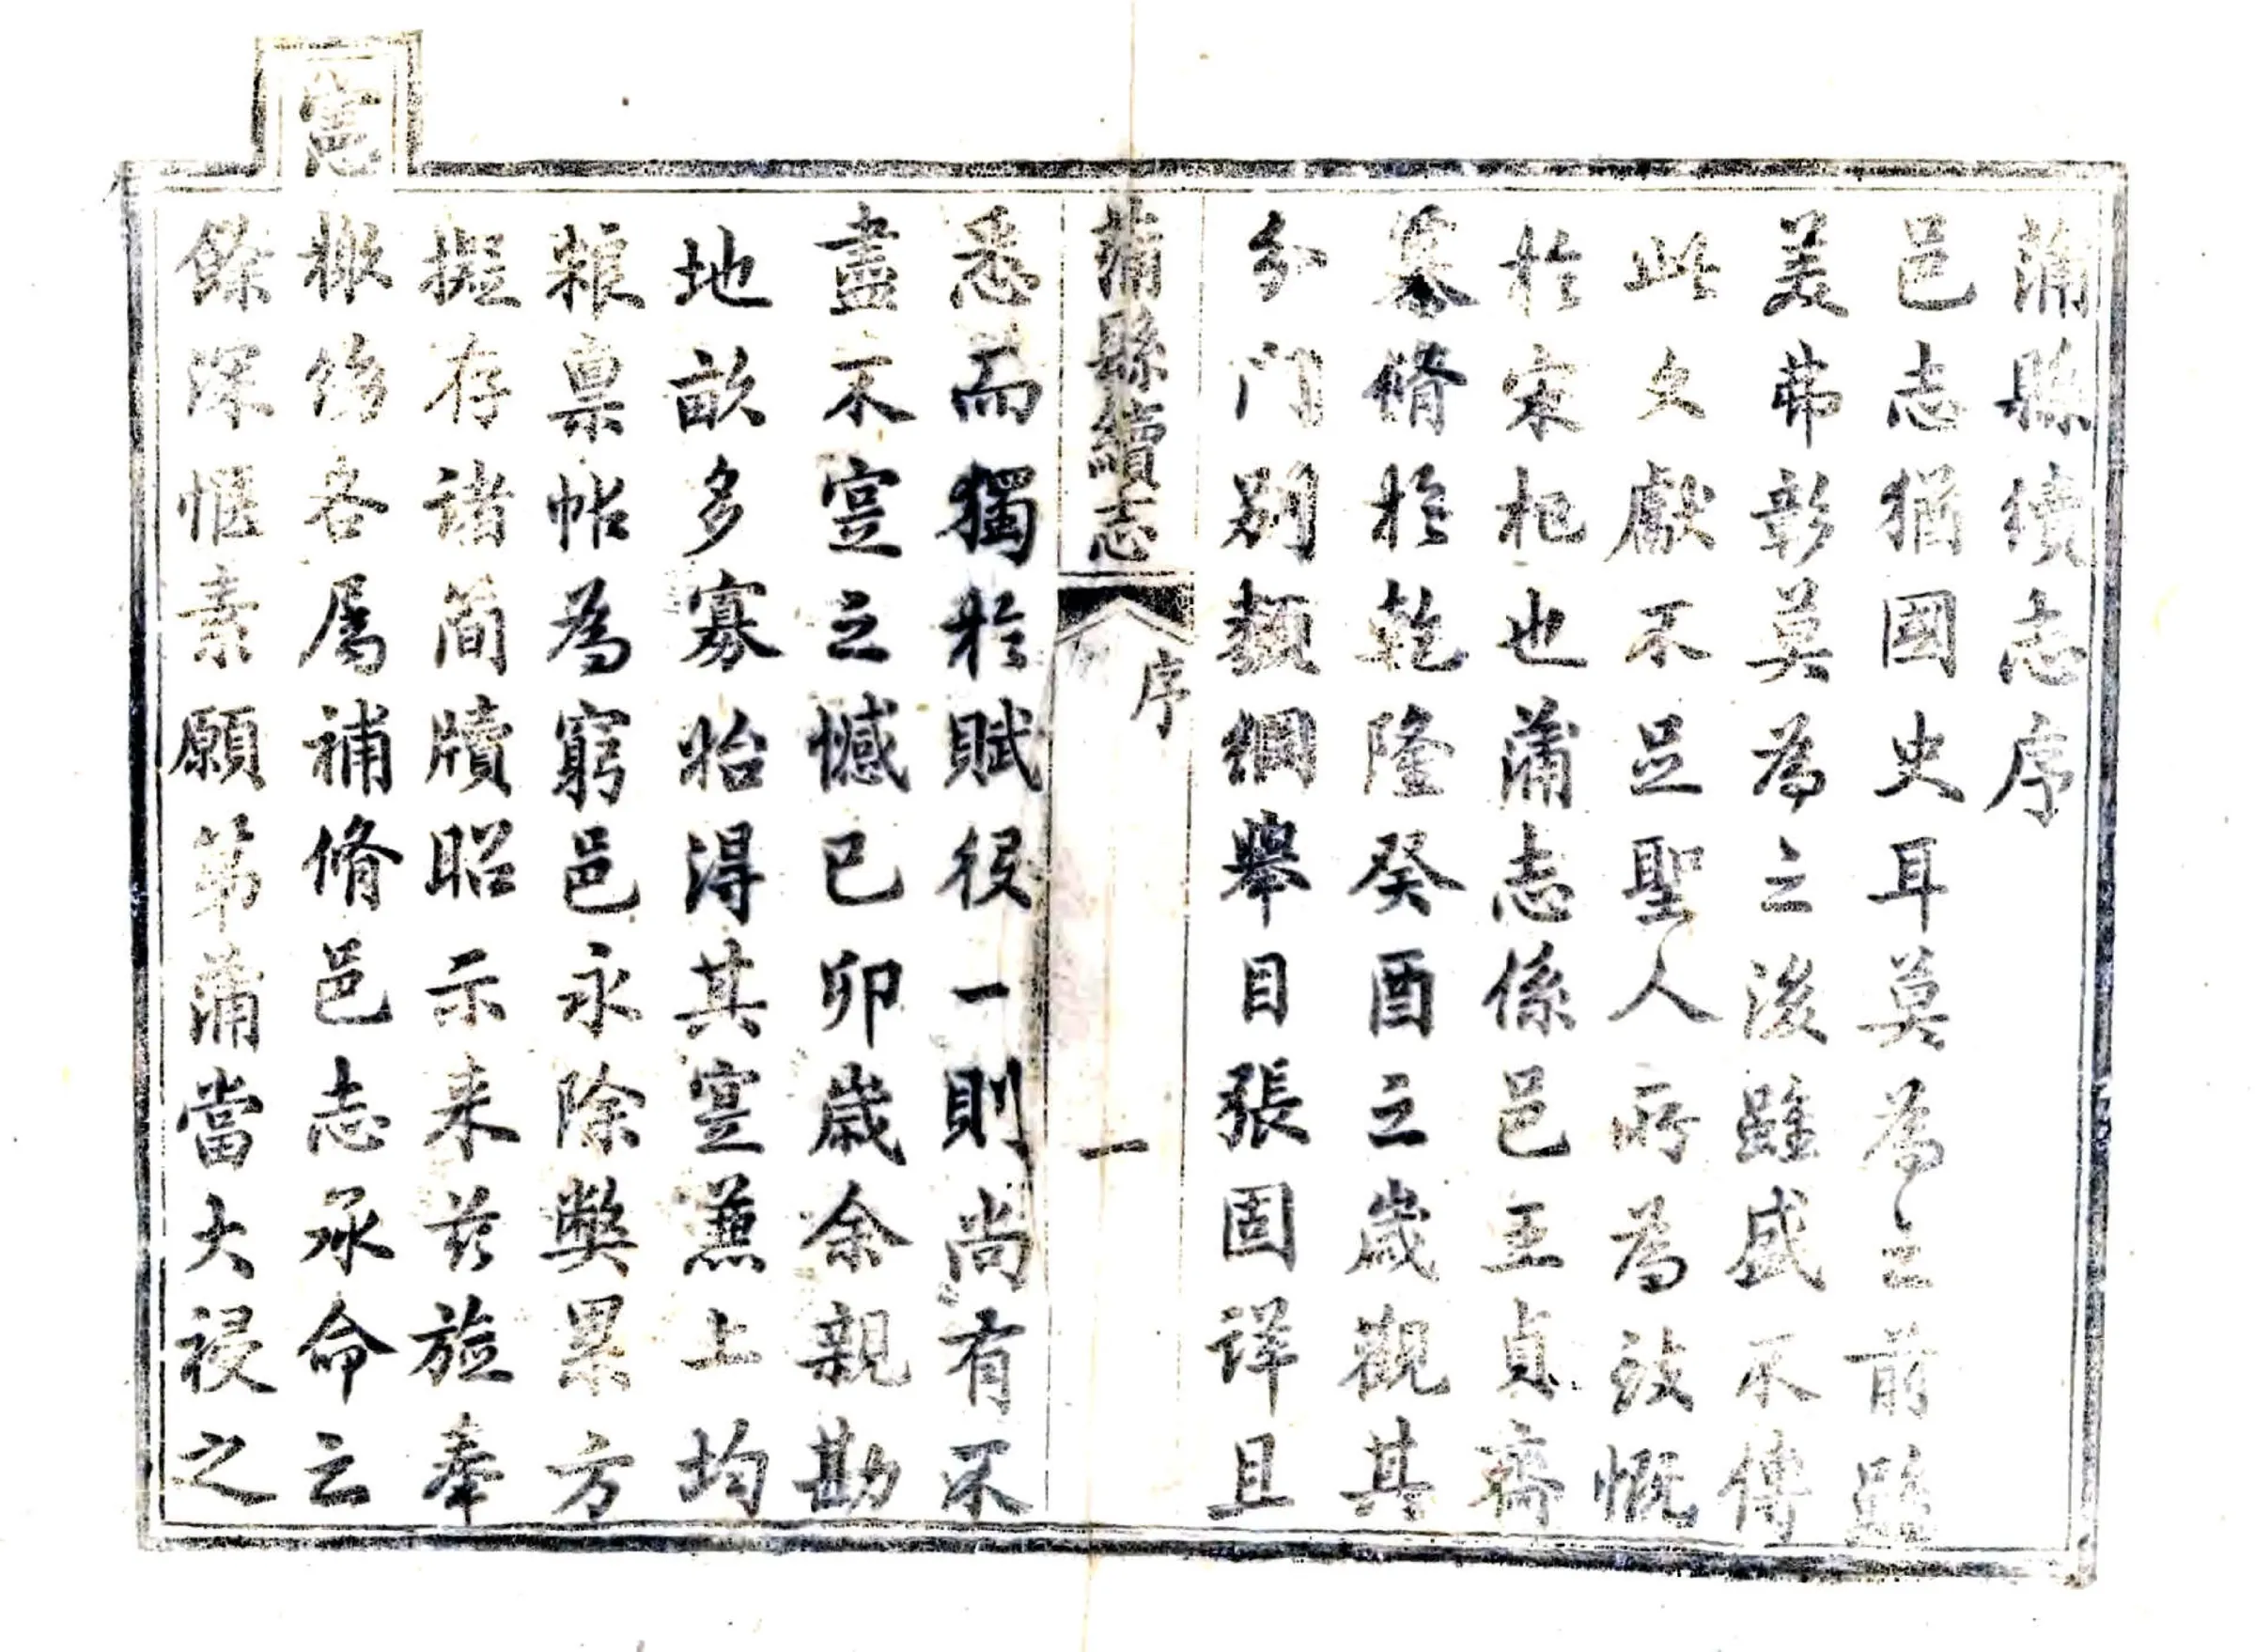 蒲縣續志序
邑志猶國史耳莫為之前雖
美弗彰莫為之後雖盛不傳
此文獻不足聖人所為致慨
於宋杞也蒲志係邑王貞齋
纂脩於乾隆癸酉之歲觀其
分門別類綱舉目張固详且
蒲縣續志
序
一
悉而獨於賦役一則尚有不
盡不寔之憾已卯歲余親勘
地畝多寡始淂其寔蕪上均
粮禀帖為窮邑永除獘累方
擬存諸简牘昭示来兹旋奉
憲
檄飭各属補脩邑志承命之
餘深愜素願第蒲當大祲之